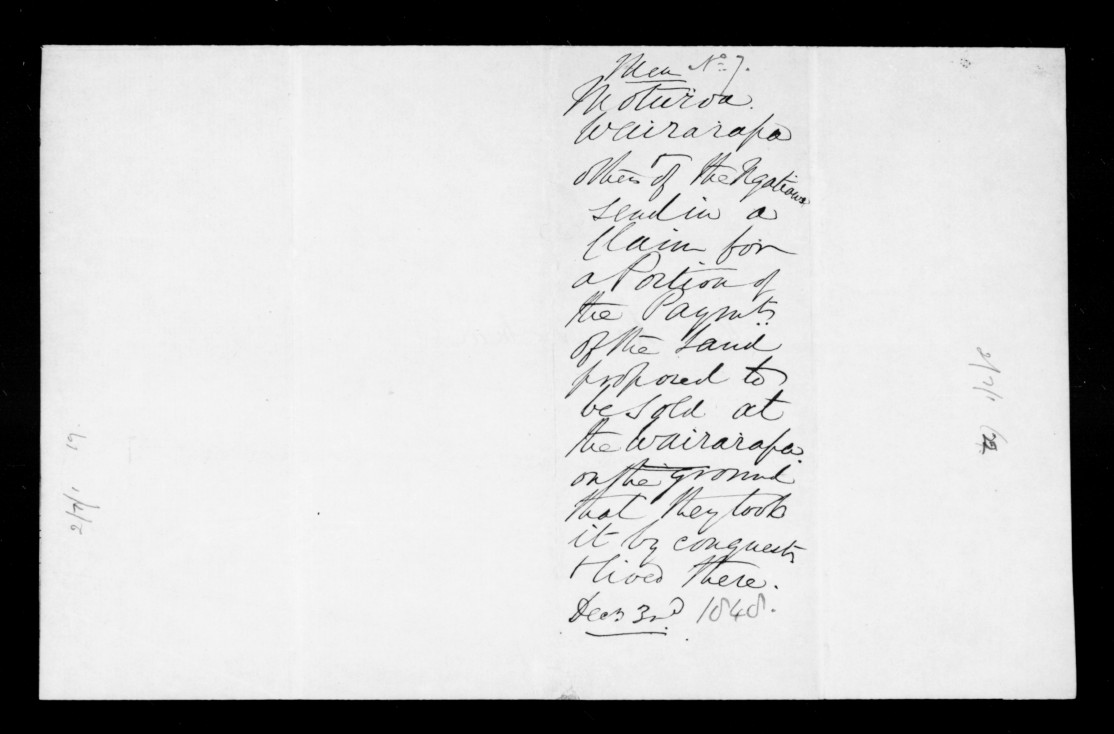 Mem No. 7.
Moturoa.
Wairarapa
others of the Ngatiawa
send in a
Claim for
a Portion of
the Paymts
of the Land
proposed to
be sold at
the Wairarapa
on the ground
that they took
it by conquest
& lived there.
Decr 3rd 1848.
2/7/1 19.